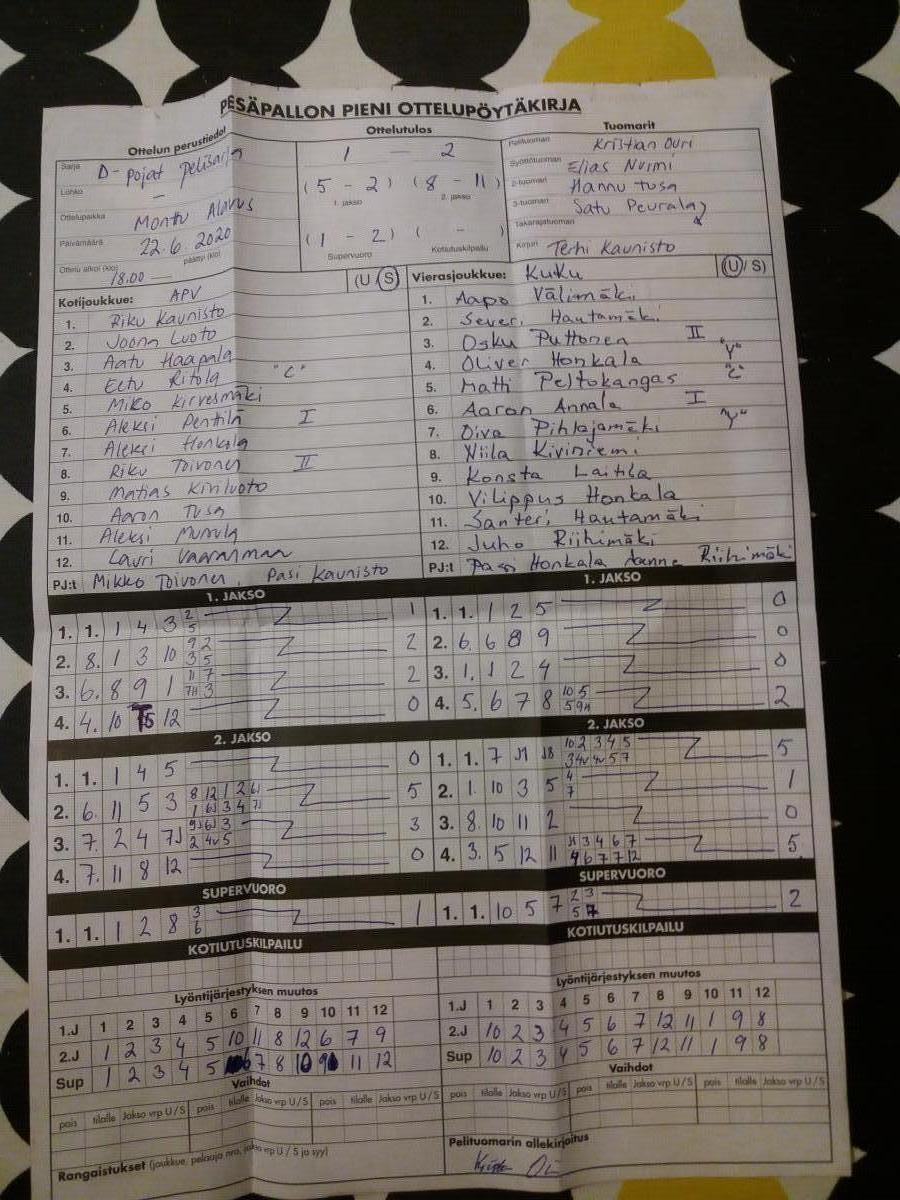 PESÄPALLON PIENI OTTELUPÖYTÄKIRJA
Ottelun perustiedot
Sarja D-pojat pelisarja
Lohko -
Ottelupaikka Monttu Alavus
Päivämäärä 22.6.2020
Ottelu alkoi (klo) 18.00 päättyi (klo)
Ottelutulos
1 - 2
(5 - 2) (8 - 11)
1. jakso 2. jakso
(1 - 2) ( - )
Supervuoro Kotiutuskilpailu
Tuomarit
Pelituomari Kristian Ouri
Syöttötuomari Elias Nurmi
2-tuomari Hannu Tusa
3-tuomari Satu Peurala
Takarajatuomari
Kirjuri Terhi Kaunisto
Kotijoukkue: APV (U/S)
1. Riku Kaunisto
2. Joona Luoto
3. Aatu Haapala
4. Eetu Ritola "C"
5. Miko Kirvesmäki
6. Aleksi Penttilä I
7. Aleksi Honkola
8. Riku Toivonen II
9. Matias Kiviluoto
10. Aaron Tusa
11. Aleksi
12. Lauri
PJ:t Mikko Toivonen, Pasi Kaunisto
Vierasjoukkue: KuKu (U/S)
1. Aapo Välimäki
2. Severi Hautamäki
3. Osku Puttonen II
4. Oliver Honkala "V"
5. Matti Peltokangas "C"
6. Aaron Annala I
7. Oiva Pihlajamäki "V"
8. Niila Kiviniemi
9. Konsta Laitila
10. Vilippus Honkala
11. Santeri Hautamäki
12. Juho Riihimäki
PJ:t Pasi Honkala Riihimäki
1. JAKSO
1. 1. 1 4 3 2 5 1
2. 8. 1 3 10 9 2 3 5 2
3. 6. 8 9 1 2
4. 4. 10 12 0
1. JAKSO
1. 1. 1 2 5 0
2. 6. 6 8 9 0
3. 1. 1 2 4 0
4. 5. 6 7 8 10 5 2
2. JAKSO
1. 1. 1 4 5 0
2. 6. 11 5 3 5
3. 7. 2 4 3
4. 7. 11 8 12 0
2. JAKSO
1. 1. 7 10 2 3 4 5 5
2. 1. 10 3 5 4 7 1
3. 8. 10 11 2 0
4. 3. 5 12 11 3 4 6 7 4 6 7 7 12 5
SUPERVUORO
1. 1. 1 2 8 3 6 1
SUPERVUORO
1. 1. 10 5 7 2 3 5 7 2
KOTIUTUSKILPAILU
KOTIUTUSKILPAILU
Lyöntijärjestyksen muutos
1.J 1 2 3 4 5 6 7 8 9 10 11 12
2.J 1 2 3 4 5 10 11 8 12 6 7 9
Sup 1 2 3 4 5 6 7 8 10 9 11 12
Lyöntijärjestyksen muutos
1.J 1 2 3 4 5 6 7 8 9 10 11 12
2.J 10 2 3 4 5 6 7 12 11 1 9 8
Sup 10 2 3 4 5 6 7 12 11 1 9 8
Vaihdot
pois tilalle Jakso vrp U/S pois tilalle Jakso vrp U/S pois tilalle Jakso vrp U/S
Vaihdot
pois tilalle Jakso vrp U/S pois tilalle Jakso vrp U/S pois tilalle Jakso vrp U/S
Rangaistukset (joukkue, pelaaja nro, jakso vrp U/S ja syy)
Pelituomarin allekirjoitus